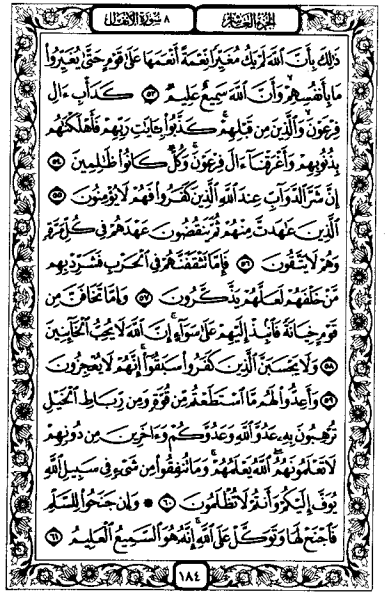 الجزء العاشر
٨ سورة الأنفال
ذَٰلِكَ بِأَنَّ ٱللَّهَ لَمْ يَكُ مُغَيِّرًا نِّعْمَةً أَنْعَمَهَا عَلَىٰ قَوْمٍ حَتَّىٰ يُغَيِّرُوا۟
مَا بِأَنفُسِهِمْ وَأَنَّ ٱللَّهَ سَمِيعٌ عَلِيمٌ ٥٣ كَدَأْبِ ءَالِ
فِرْعَوْنَ وَٱلَّذِينَ مِن قَبْلِهِمْ كَذَّبُوا۟ بِـَٔايَـٰتِ رَبِّهِمْ فَأَهْلَكْنَـٰهُم
بِذُنُوبِهِمْ وَأَغْرَقْنَآ ءَالَ فِرْعَوْنَ وَكُلٌّ كَانُوا۟ ظَـٰلِمِينَ ٥٤
إِنَّ شَرَّ ٱلدَّوَآبِّ عِندَ ٱللَّهِ ٱلَّذِينَ كَفَرُوا۟ فَهُمْ لَا يُؤْمِنُونَ ٥٥
ٱلَّذِينَ عَـٰهَدتَّ مِنْهُمْ ثُمَّ يَنقُضُونَ عَهْدَهُمْ فِى كُلِّ مَرَّةٍ
وَهُمْ لَا يَتَّقُونَ ٥٦ فَإِمَّا تَثْقَفَنَّهُمْ فِى ٱلْحَرْبِ فَشَرِّدْ بِهِم
مَّنْ خَلْفَهُمْ لَعَلَّهُمْ يَذَّكَّرُونَ ٥٧ وَإِمَّا تَخَافَنَّ مِن
قَوْمٍ خِيَانَةً فَٱنۢبِذْ إِلَيْهِمْ عَلَىٰ سَوَآءٍ إِنَّ ٱللَّهَ لَا يُحِبُّ ٱلْخَآئِنِينَ
٥٨ وَلَا يَحْسَبَنَّ ٱلَّذِينَ كَفَرُوا۟ سَبَقُوٓا۟ إِنَّهُمْ لَا يُعْجِزُونَ
٥٩ وَأَعِدُّوا۟ لَهُم مَّا ٱسْتَطَعْتُم مِّن قُوَّةٍ وَمِن رِّبَاطِ ٱلْخَيْلِ
تُرْهِبُونَ بِهِۦ عَدُوَّ ٱللَّهِ وَعَدُوَّكُمْ وَءَاخَرِينَ مِن دُونِهِمْ
لَا تَعْلَمُونَهُمُ ٱللَّهُ يَعْلَمُهُمْ وَمَا تُنفِقُوا۟ مِن شَىْءٍ فِى سَبِيلِ ٱللَّهِ
يُوَفَّ إِلَيْكُمْ وَأَنتُمْ لَا تُظْلَمُونَ ٦٠ ۞ وَإِن جَنَحُوا۟ لِلسَّلْمِ
فَٱجْنَحْ لَهَا وَتَوَكَّلْ عَلَى ٱللَّهِ إِنَّهُۥ هُوَ ٱلسَّمِيعُ ٱلْعَلِيمُ ٦١
١٨٤